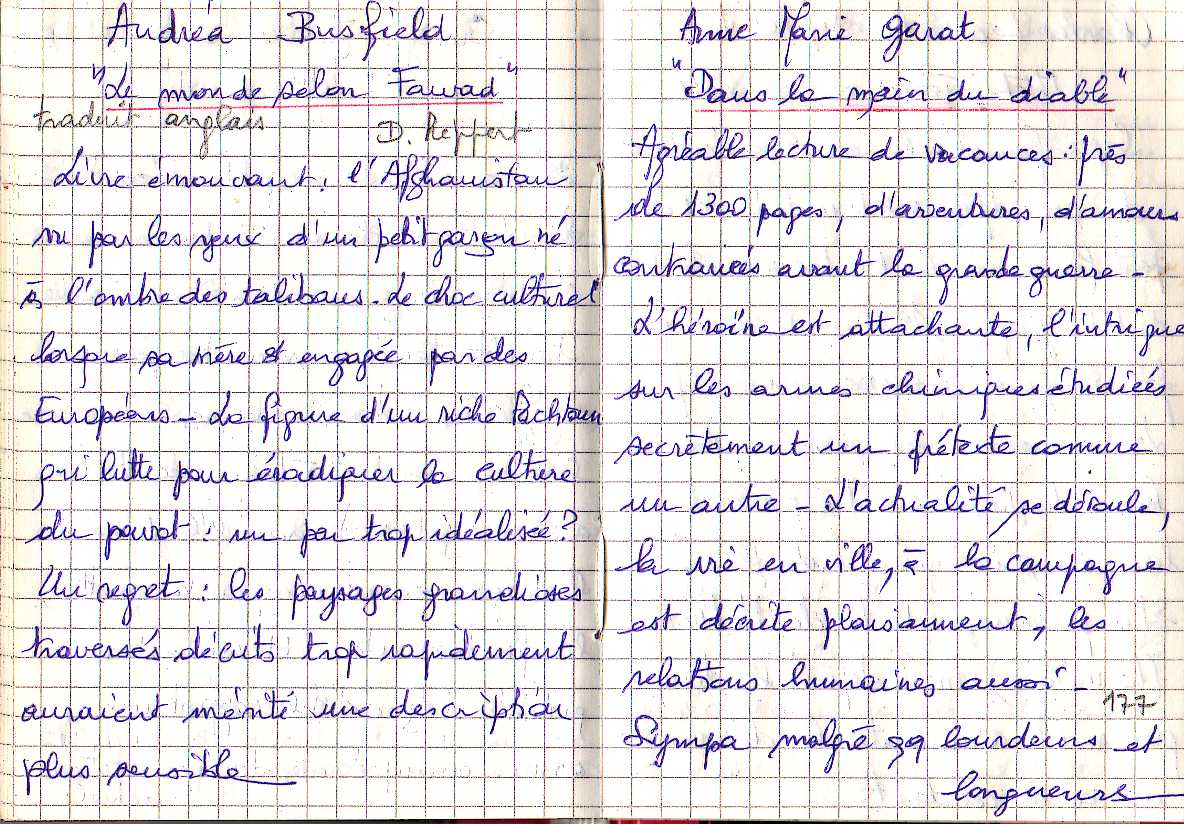 Andréa Busfield
"Le monde selon Fawad"
traduit anglais D. Reppert
Livre émouvant : l'Afghanistan
vu par les yeux d'un petit garçon né
à l'ombre des talibans. Le choc culturel
lorsque sa mère est engagée par des
Européens - La figure d'un riche Pachtoun
qui lutte pour éradiquer la culture
du pavot : un peu trop idéalisée ?
Un regret : les paysages grandioses
traversés décrits trop rapidement
auraient mérité une description
plus sensible
Anne Marie Garat
"Dans la main du diable"
Agréable lecture de vacances : près
de 1300 pages, d'aventures, d'amours
contrariées avant la grande guerre -
L'héroïne est attachante, l'intrigue
sur les armes chimiques étudiées
secrètement un prétexte comme
un autre - L'actualité se déroule,
la vie en ville, à la campagne
est décrite plaisamment, les
relations humaines aussi -
177
Sympa malgré qq lourdeurs et
longueurs